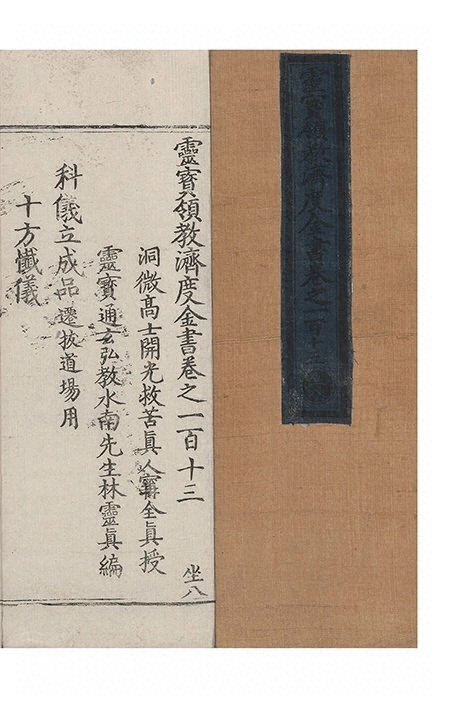 靈寳領教濟度金書卷之一百十三
靈寳領教濟度金書卷之一百十三
坐八
洞微高士開光救苦眞人甯全眞授
靈寳通玄弘教水南先生林靈眞編
科儀立成品 遷拔道場用
十方懴儀